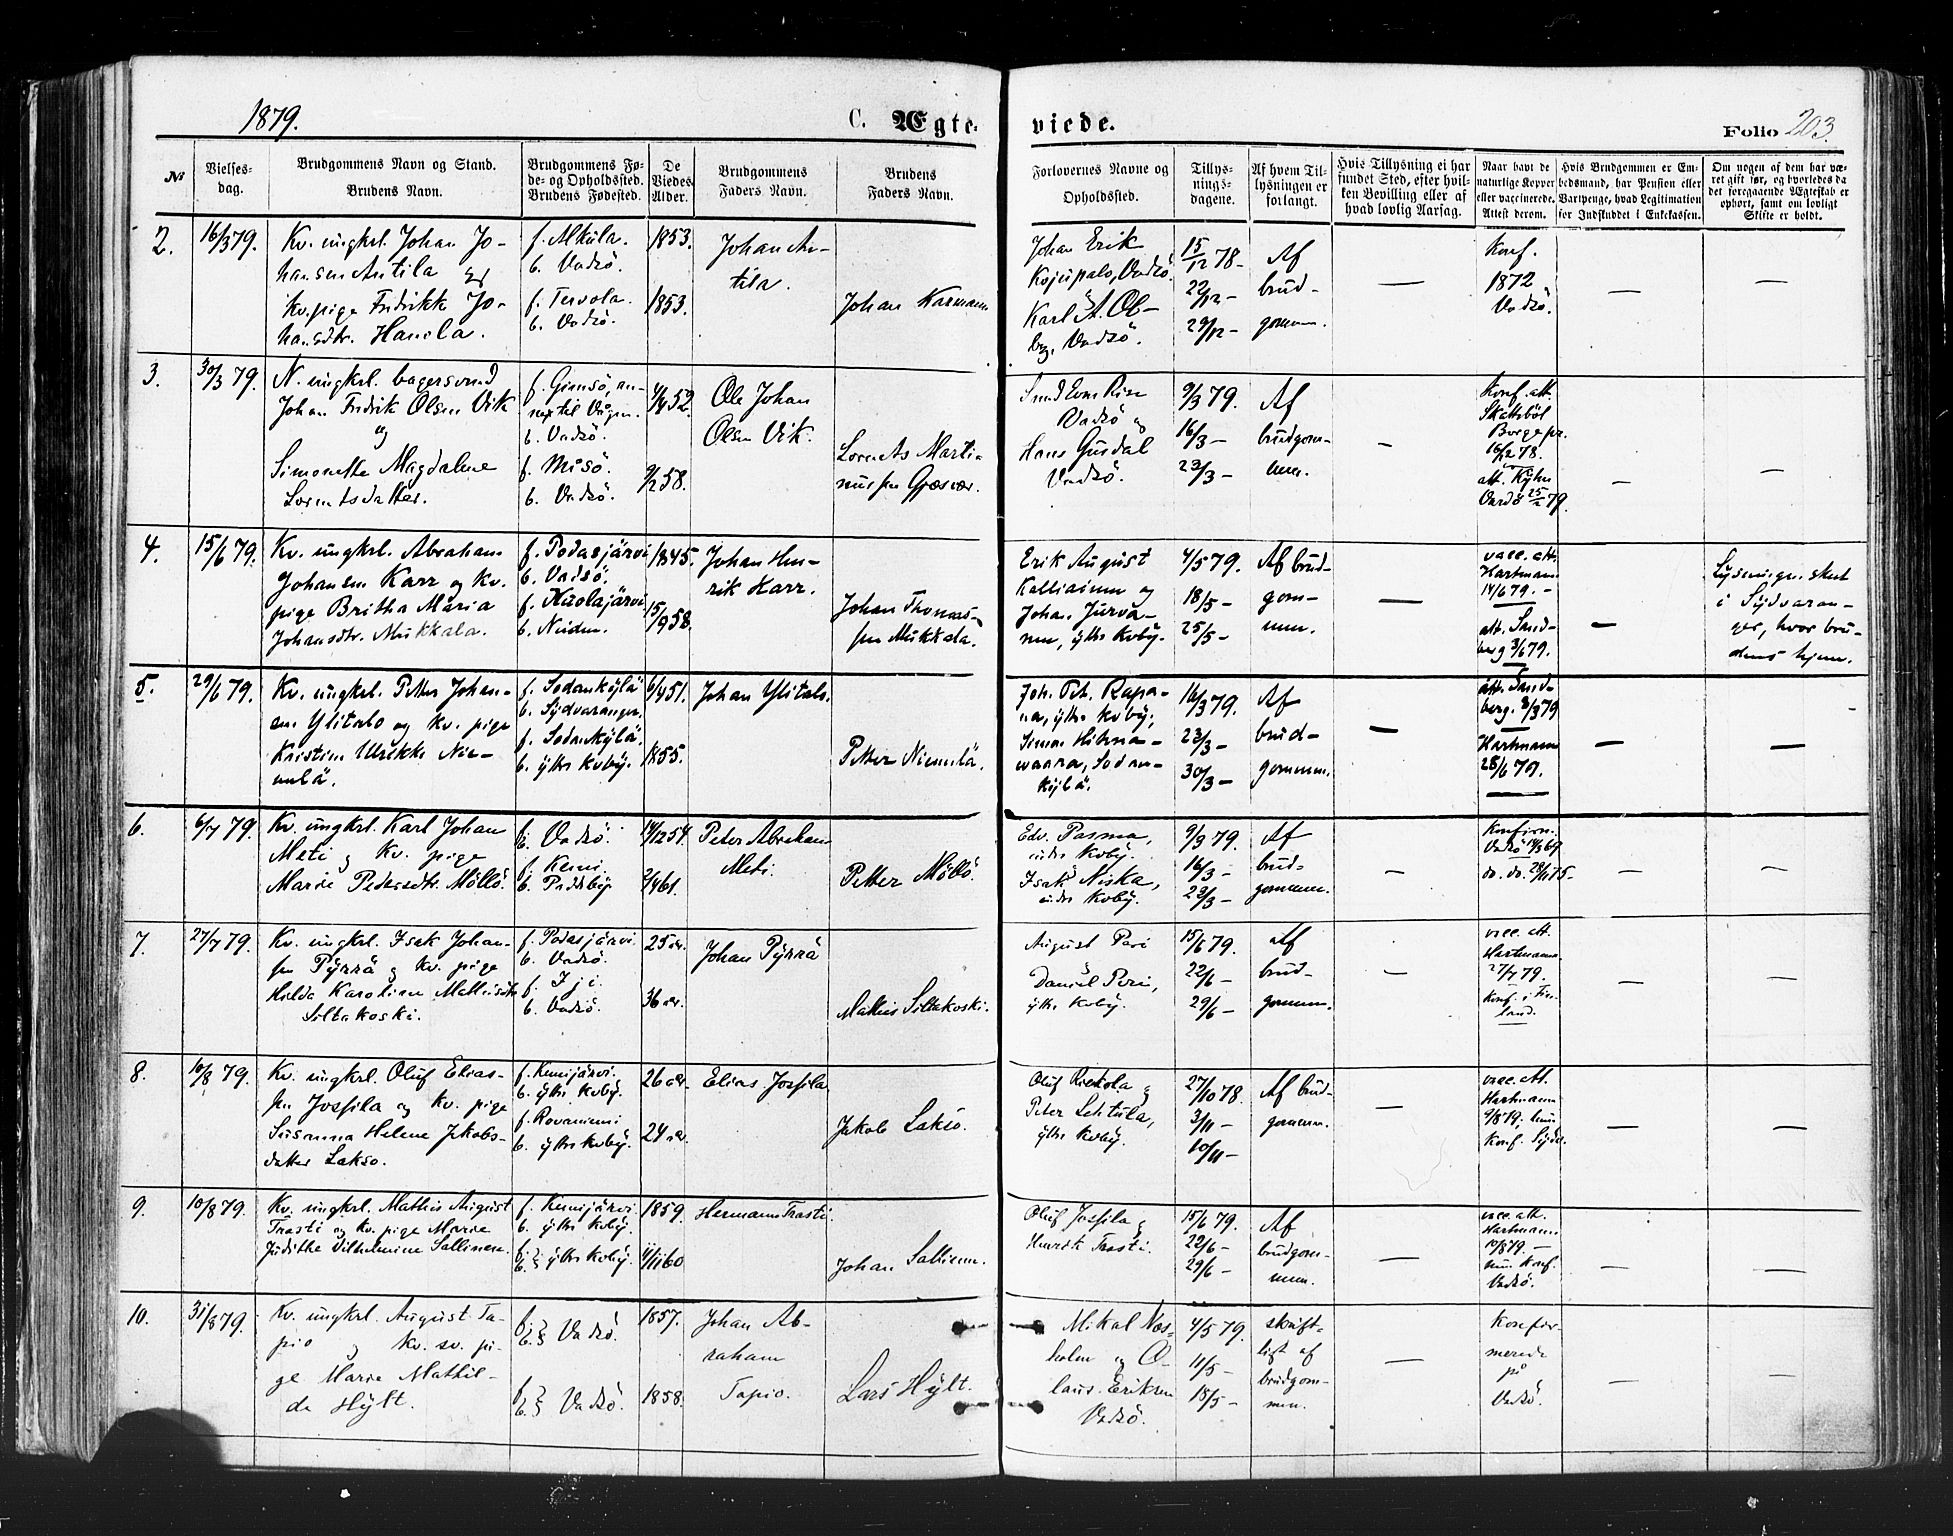 1879.
C. Ægte-
viede.
Folio 203
No
Vielses-
dag.
Brudgommens Navn og Stand.
Brudens Navn.
Brudgommens Fø-
de- og Opholdssted.
Brudens Fødested.
De
Viedes
Alder.
Brudgommens
Faders Navn.
Brudens
Faders Navn.
Forlovernes Navne og
Opholdssted.
Tillys-
nings-
dagene.
Af hvem Til-
lysningen er
forlangt.
Hvis Tillysning ei har
fundet Sted, efter hvil-
ken Bevilling eller af
hvad lovlig Aarsag.
Naar havt de
naturlige Kopper
eller vaccinerede.
Attest derom.
Hvis Brudgommen er Em-
bedsmand, har Pension eller
Vartpenge, hvad Legitimation
for Indskuddet i Enkekassen.
Om nogen af dem har væ-
ret gift før, og hvorledes da
det foregaaende Ægteskab er
ophørt, samt om lovligt
Skifte er holdt.
2.
16/3 79.
Kv. ungkrl. Johan Jo-
hansen Antila og
Kv. pige Fredrikk Jo-
hansdtr. Hanila.
f. Alkula.
b. Vadsö.
f. Tervola.
b. Vadsö.
1853.
1853.
Johan An-
tila.
Johan Karmann
Johan Erik
Kojupalo, Vadsö.
Karl A. Ol-
Vadsö.
15/12 78-
22/12-
29/12-
Af
brud-
gommen.
—
Konf.
1872
Vadsö.
—
—
3.
30/3 79.
N. ungkrl. bagersvend
Johan Fredrik Olsen Vik
og
Simonette Magdalene
Lorentsdatter.
f. Gimsö, an-
nex til Vågan.
b. Vadsö.
f. Misö.
b. Vadsö.
4/4 52.
9/2 58.
Ole Johan
Olsen Vik.
Lorents Marti-
nussen Gjæsvær.
Vadsö og
Hans Gusdal
Vadsö.
9/3 79.
16/3-
23/3-
Af
brudgom-
men.
-
Konf. att.
Skattebøl
Borge pr.
16/12 78.
att. Kyhn
Vardö 25/2 79.
-
-
4.
15/6 79.
Kv. ungkrl. Abraham
Johansen Karr og kv.
pige Britha Maria
Johansdtr. Mukkala.
f. Podasjärvi
b. Vadsö.
f. Kuolajärvi
b. Neiden.
1845.
15/9 58.
Johan Hen-
rik Karr.
Johan Thomas-
sen Mukkala.
Erik August
Kalliainen og
Johan Jurva-
nen, ytre Kvby.
4/5 79.
18/5-
25/5-
Af brud-
gom-
men.
—
vacc. att.
Hartmann
14/6 79.-
att. Sand-
berg 3/6 79.
-
Lysningen skeet
i Sydvaran-
ger, hvor bru-
dens hjem.
5.
29/6 79.
Kv. ungkrl. Petter Johan-
sen Ylitalo og kv. pige
Kristine Ulrikke Nie-
melä.
f. Sodankylä
b. Sydvaranger.
f. Sodankylä.
b. ytre Kvby.
6/4 51.
1855.
Johan Ylitalo.
Petter Niemelä.
Joh. Pet. Rapa-
na, ytre Kvby,
Simon Hiltua-
waara, Sodan-
kylä.
16/3 79.
23/3-
30/3-
Af
brud-
gommen.
-
att. Sand-
berg. 8/3 79
Hartmann
28/6 79.
-
—
6.
6/7 79.
Kv. ungkrl. Karl Johan
Meti og Kv. pige
Marie Pedersdtr. Möllö.
f. b. Vadsö.
f. Kemi.
14/12 54.
2/4 61.
Peter Abraham
Meti.
Petter Möllö.
Edv. Pasma,
indre Kvby.
Isak Niska,
indre Kvby.
9/3 79.
16/3-
23/3-
Af
brud-
gommen.
-
Konfirm.
Vadsö
do. do.
-
-
7.
27/7 79.
Kv. ungkrl. Isak Johan-
sen Pyrrä og kv. pige
Hilda Karoline Mathisdtr.
Siltakoski.
f. Podasjärvi.
b. Vadsö.
f. Iji.
b. Vadsö.
25 år.
36 år.
Johan Pyrrä
Mathis Siltakoski.
August Pari
Daniel Peri,
ytre Kvby.
15/6 79.
22/6-
29/6-
Af
brud-
gommen.
-
vacc. att.
Hartmann
27/7 79.
Konf. i Fin-
land.
-
-
8.
10/8 79.
Kv. ungkrl. Oluf Elias-
sen Josfila og kv. pige
Susanna Helene Jakobs-
datter Lakso.
f. Kemijärvi.
b. ytre Kvby.
f. Rovaniemi
b. ytre Kvby.
26 år.
24 år.
Elias Josfila
Jakob Lakso.
Oluf Riekola og
Peter Lehtula,
ytre Kvby.
27/10 78.
3/11-
10/11-
Af brud-
gommen.
—
vacc. att.
Hartmann
9/8 79.
Konf. Sydv.
-
-
9.
10/8 79.
Kv. ungkrl. Mathis August
Trasti og kv. pige Marie
Judithe Vilhelmine Sallinen.
f. Kemijärvi
b. ytre Kvby.
f. b. ytre Kvby.
1859.
11/11 60
Hermann Trasti.
Johan Sallinen.
Oluf Josfila og
Henrik Trasti.
15/6 79.
22/6-
29/6-
Af
brudgom-
men.
—
vacc. att.
Hartmann
10/8 79.-
Konf.
Vadsö.
-
—
10.
31/8 79.
Kv. ungkrl. August Ta-
pio og kv. sv. pi-
ge Marie Mathil-
de Hylt.
f. b. Vadsö.
f. b. Vadsö.
1857.
1858.
Johan Ab-
raham
Tapio.
Lars Hylt.
Mikal Næs-
holm og O-
laus Eriksen
Vadsö.
4/5 79.
11/5-
18/5-
skrift-
ligt af
brudgom-
men.
—
Konfir-
merede
på
Vadsö.
-
-